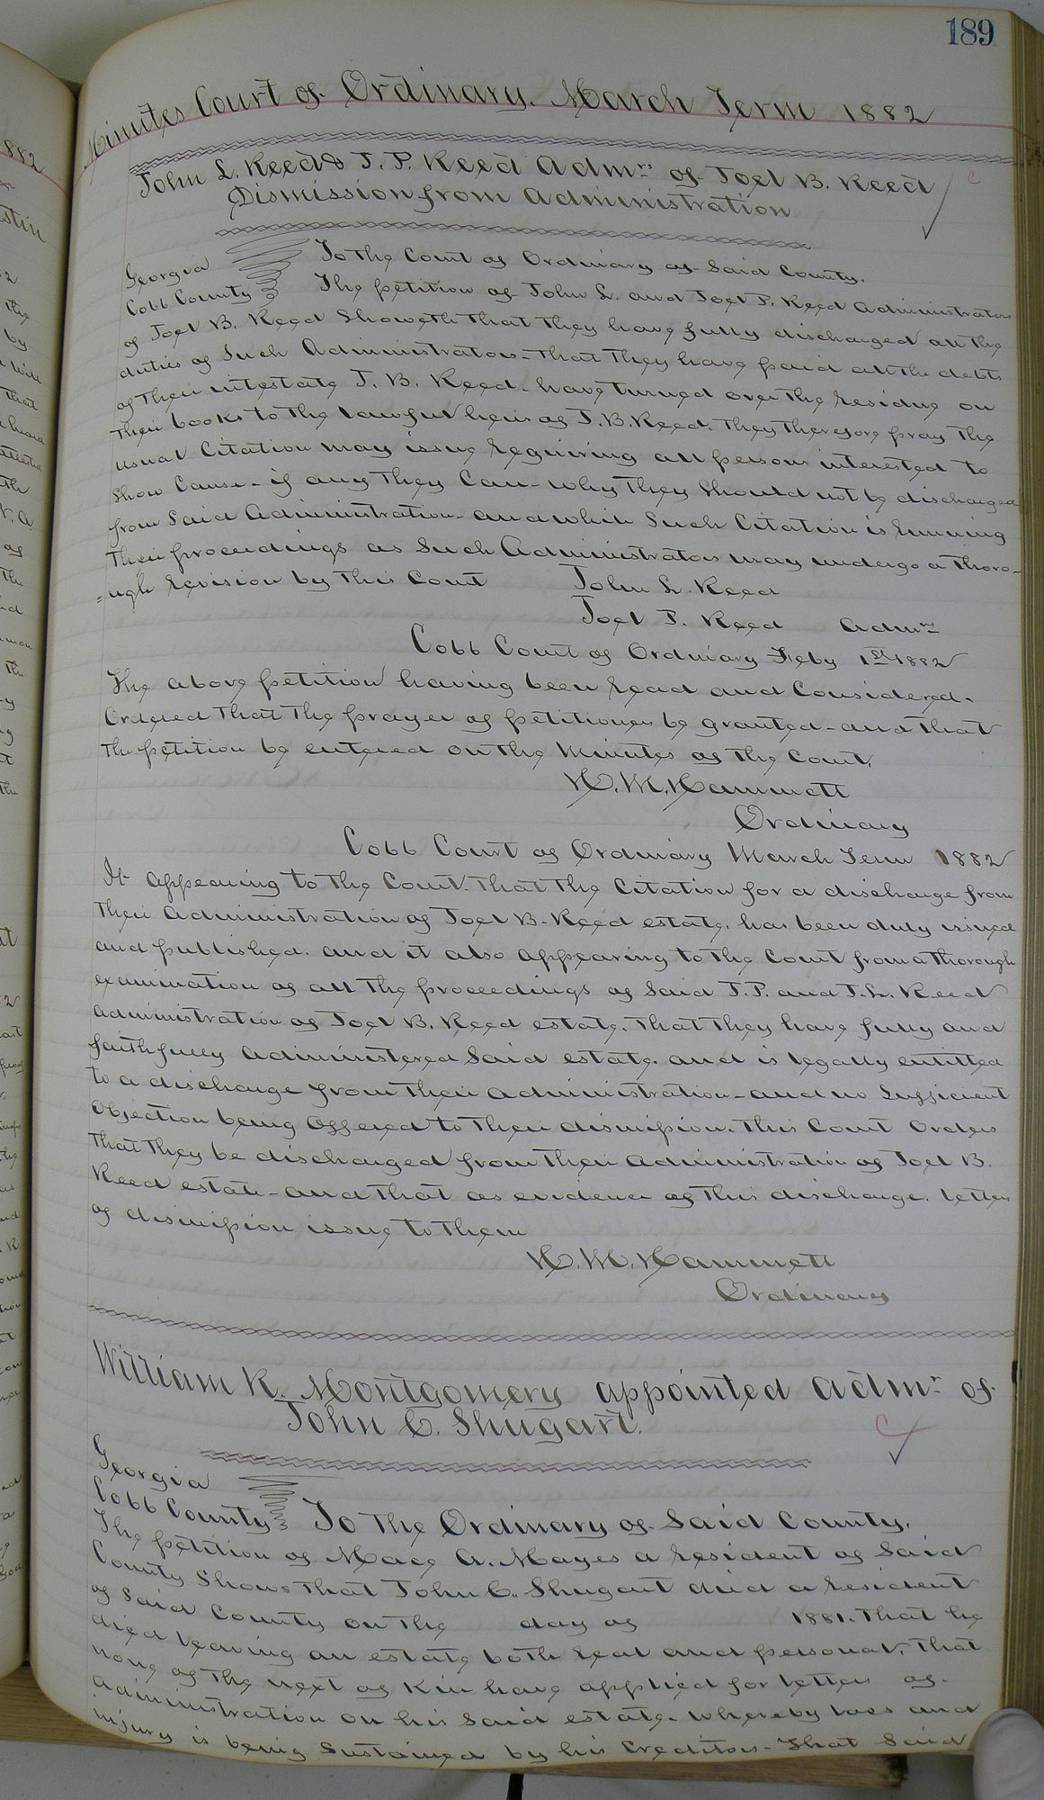 189
Minutes Court of Ordinary. March Term 1882
John L. Reed & J. P. Reed Admrs of Joel B. Reed
Dismission from Administration
Georgia
Cobb County
To the Court of Ordinary of Said County.
The petition of John L. and Joel P. Reed Administrators
of Joel B. Reed Showeth that they have fully discharged all the
duties of Such Administrators - that they have paid all the debts
of their intestate J. B. Reed - have turned over the residue on
their books to the lawful heirs of J. B. Reed. They therefore pray the
usual Citation may issue requiring all persons interested to
Show Cause - if any they Can - why they Should not be discharged
from Said Administration - and while Such Citation is running
their proceedings as Such Administrators may undergo a thoro-
=ugh revision by this Court
John L. Reed
Joel P. Reed Admrs
Cobb Court of Ordinary Feby 1st 1882
The above petition having been read and Considered.
Ordered that the prayer of petitioners be granted - and that
the petition be entered on the Minutes of the Court.
H. M. Hammett
Ordinary
Cobb Court of Ordinary March Term 1882
It appearing to the Court that the Citation for a discharge from
their Administration of Joel B. Reed estate. has been duly issued
and published. and it also appearing to the Court from a thorough
examination of all the proceedings of Said J. P. and J. L. Reed
Administration of Joel B. Reed estate. that they have fully and
faithfully administered Said estate. and is legally entitled
to a discharge from their administration - and no Sufficient
Objection being Offered to their dismission. This Court Orders
that they be discharged from their administration of Joel B.
Reed estate - and that as evidence of this discharge. letters
of dismission issue to them
H. M. Hammett
Ordinary
William R. Montgomery appointed admr of
John C. Shugart.
Georgia
Cobb County
To The Ordinary of Said County.
The petition of Mace A. Mayes a resident of Said
County Shows that John C. Shugart died a resident
of Said County on the day of 1881. That he
died leaving an estate both real and personal. That
none of the next of Kin have applied for letters of
administration on his Said estate. whereby loss and
injury is being Sustained by his Creditors. That Said